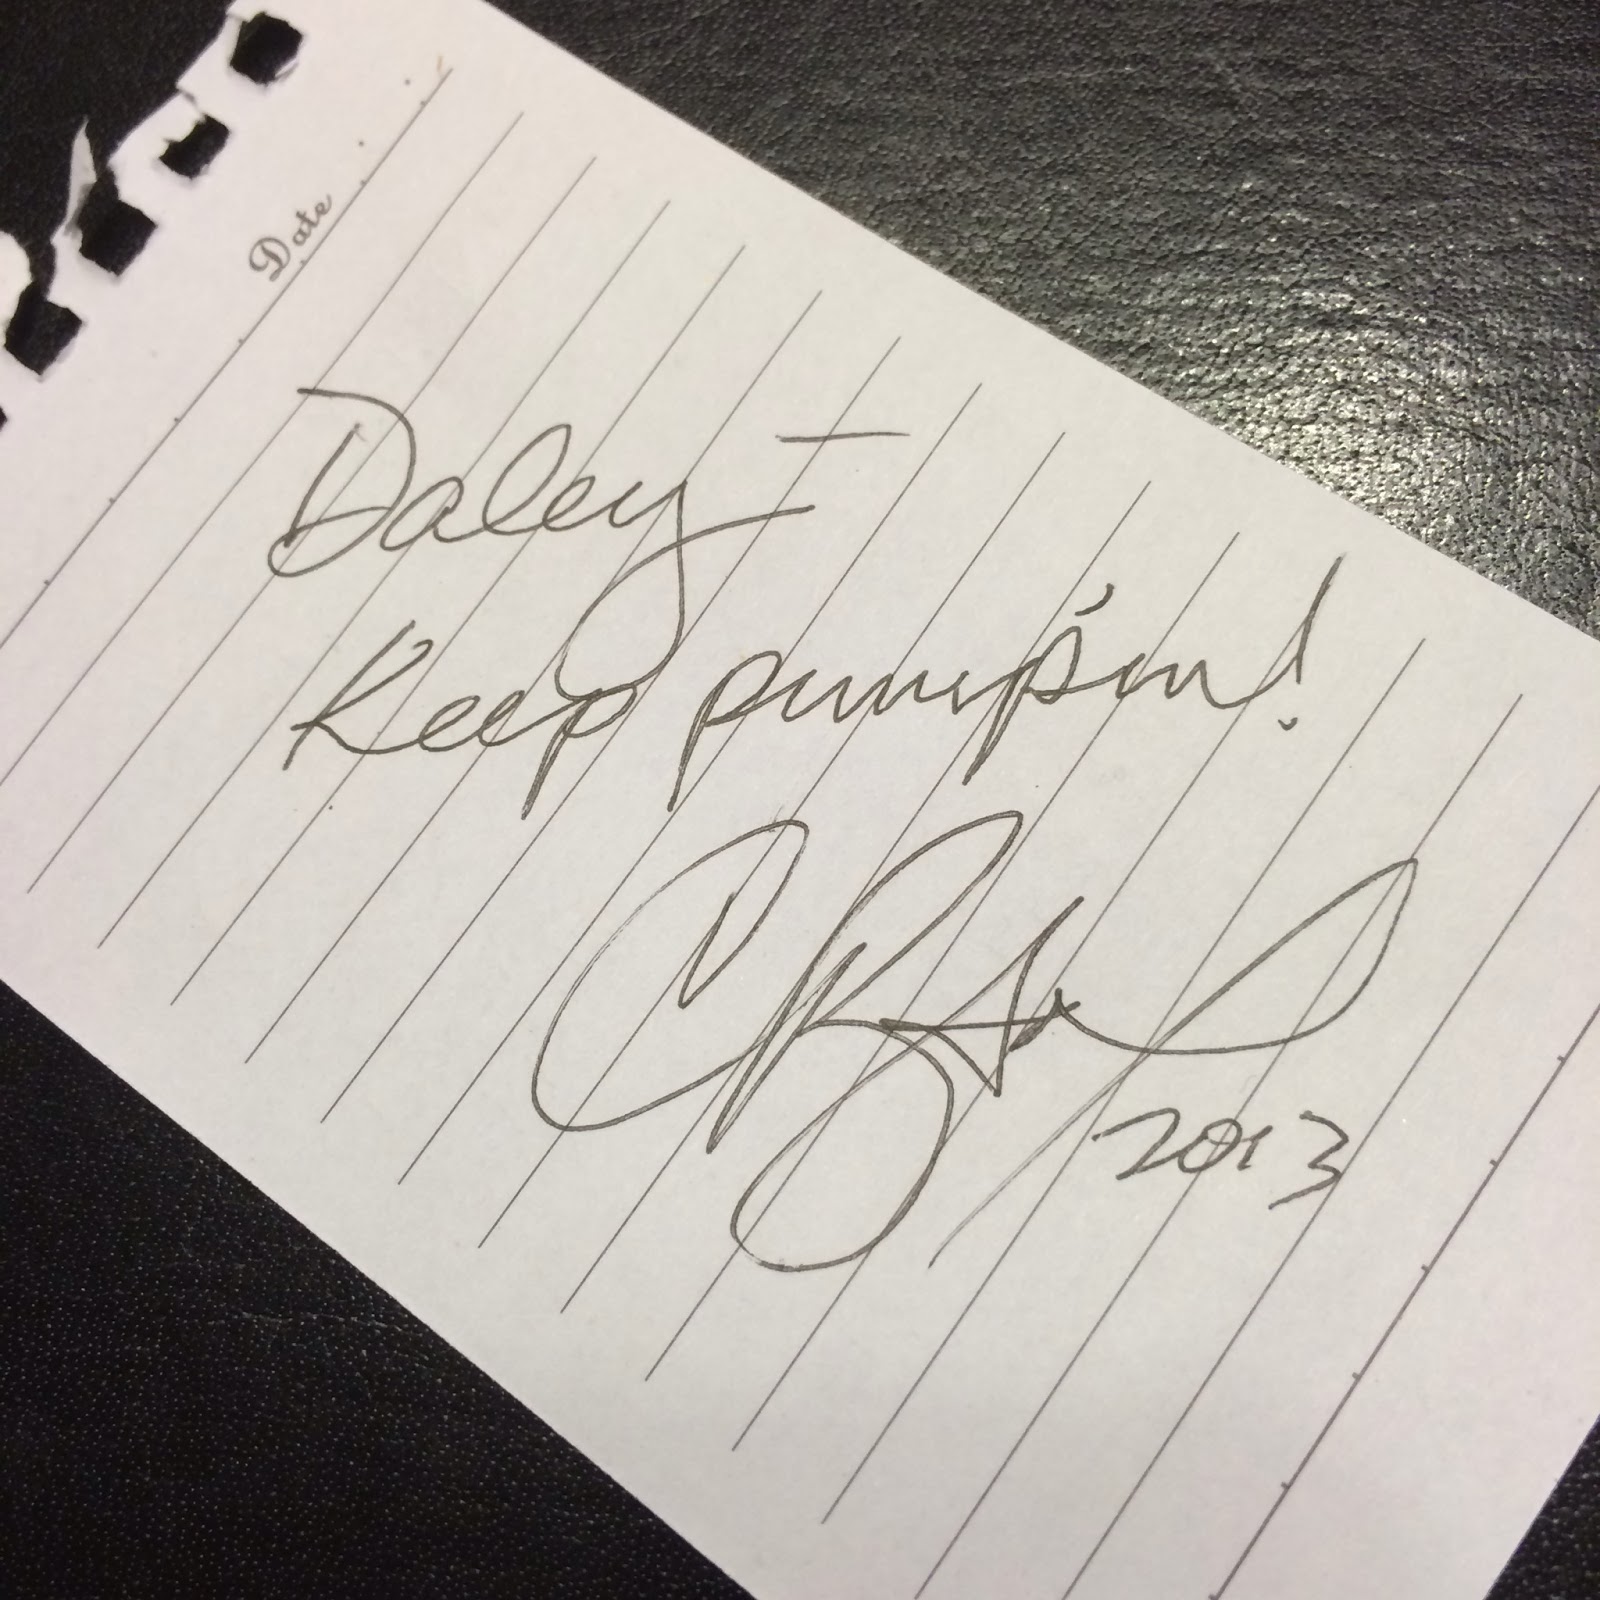 Date
Daley –
Keep pumpin'!
2013